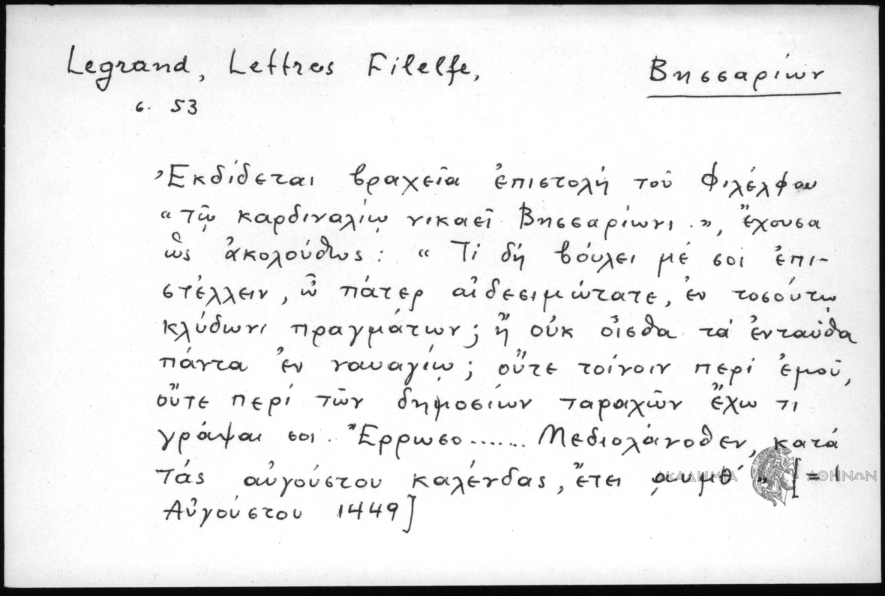 Legrand, Lettres Filelfe, Βησσαρίων
σ. 53
Ἐκδίδεται βραχεῖα ἐπιστολή τοῦ Φιλέλφου
«Τῷ καρδιναλίῳ νικαεῖ Βησσαρίωνι.», ἔχουσα
ὡς ἀκολούθως: «Τί δή βούλει μέ σοι ἐπι-
στέλλειν, ὦ πάτερ αἰδεσιμώτατε, ἐν τοσούτῳ
κλύδωνι πραγμάτων; ἤ οὐκ οἶσθα τά ἐνταῦθα
πάντα ἐν ναυαγίῳ; οὔτε τοίνοιν περί ἐμοῦ,
οὔτε περί τῶν δημοσίων ταραχῶν ἔχω τι
γράψαι σοι. Ἔρρωσο...... Μεδιολάνοθεν, κατά
τάς αὐγούστου καλένδας, ἔτει αυμθ´» [= 1
Αὐγούστου 1449]
ΑΚΑΔΗΜΙΑ ΑΘΗΝΩΝ